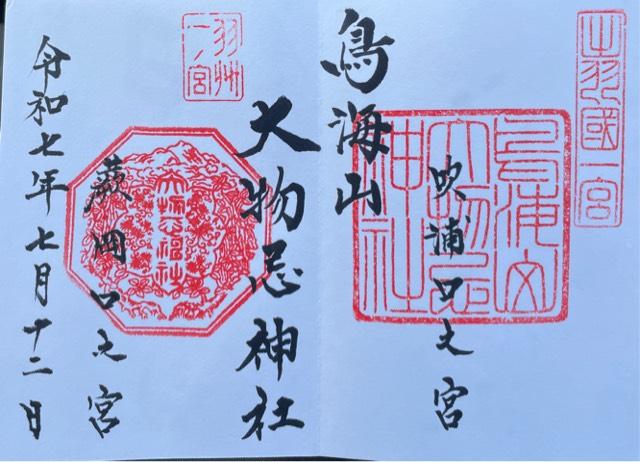 出羽國一宮
吹浦口之宮
鳥海山大物忌神社
鳥海山
大物忌神社
羽州一ノ宮
蕨岡口之宮
大物忌神社
令和七年七月十二日